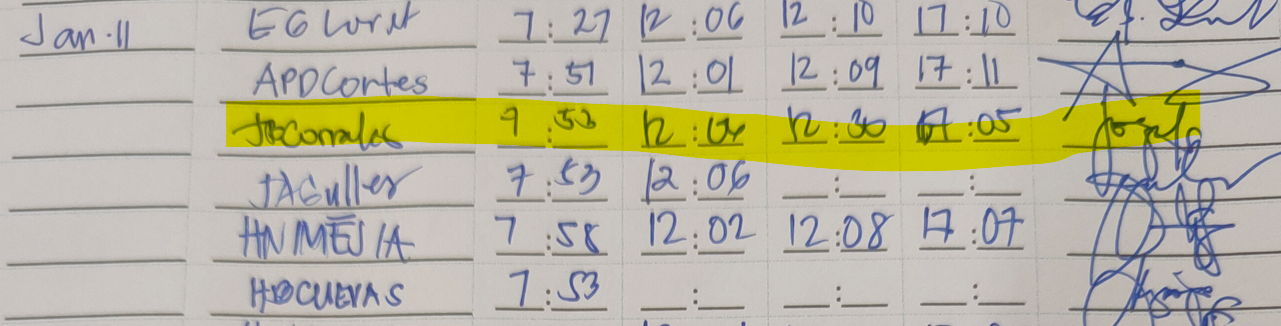 Jan. 11 EGLorit 7:27 12:06 12:10 17:10
APDCortes 7:51 12:01 12:09 17:11
JBCorrales 7:53 12:04 12:30 17:05
JAGuller 7:53 12:06 __:__ __:__
HNMEJIA 7:58 12:02 12:08 17:07
HBCUEVAS 7:53 __:__ __:__ __:__